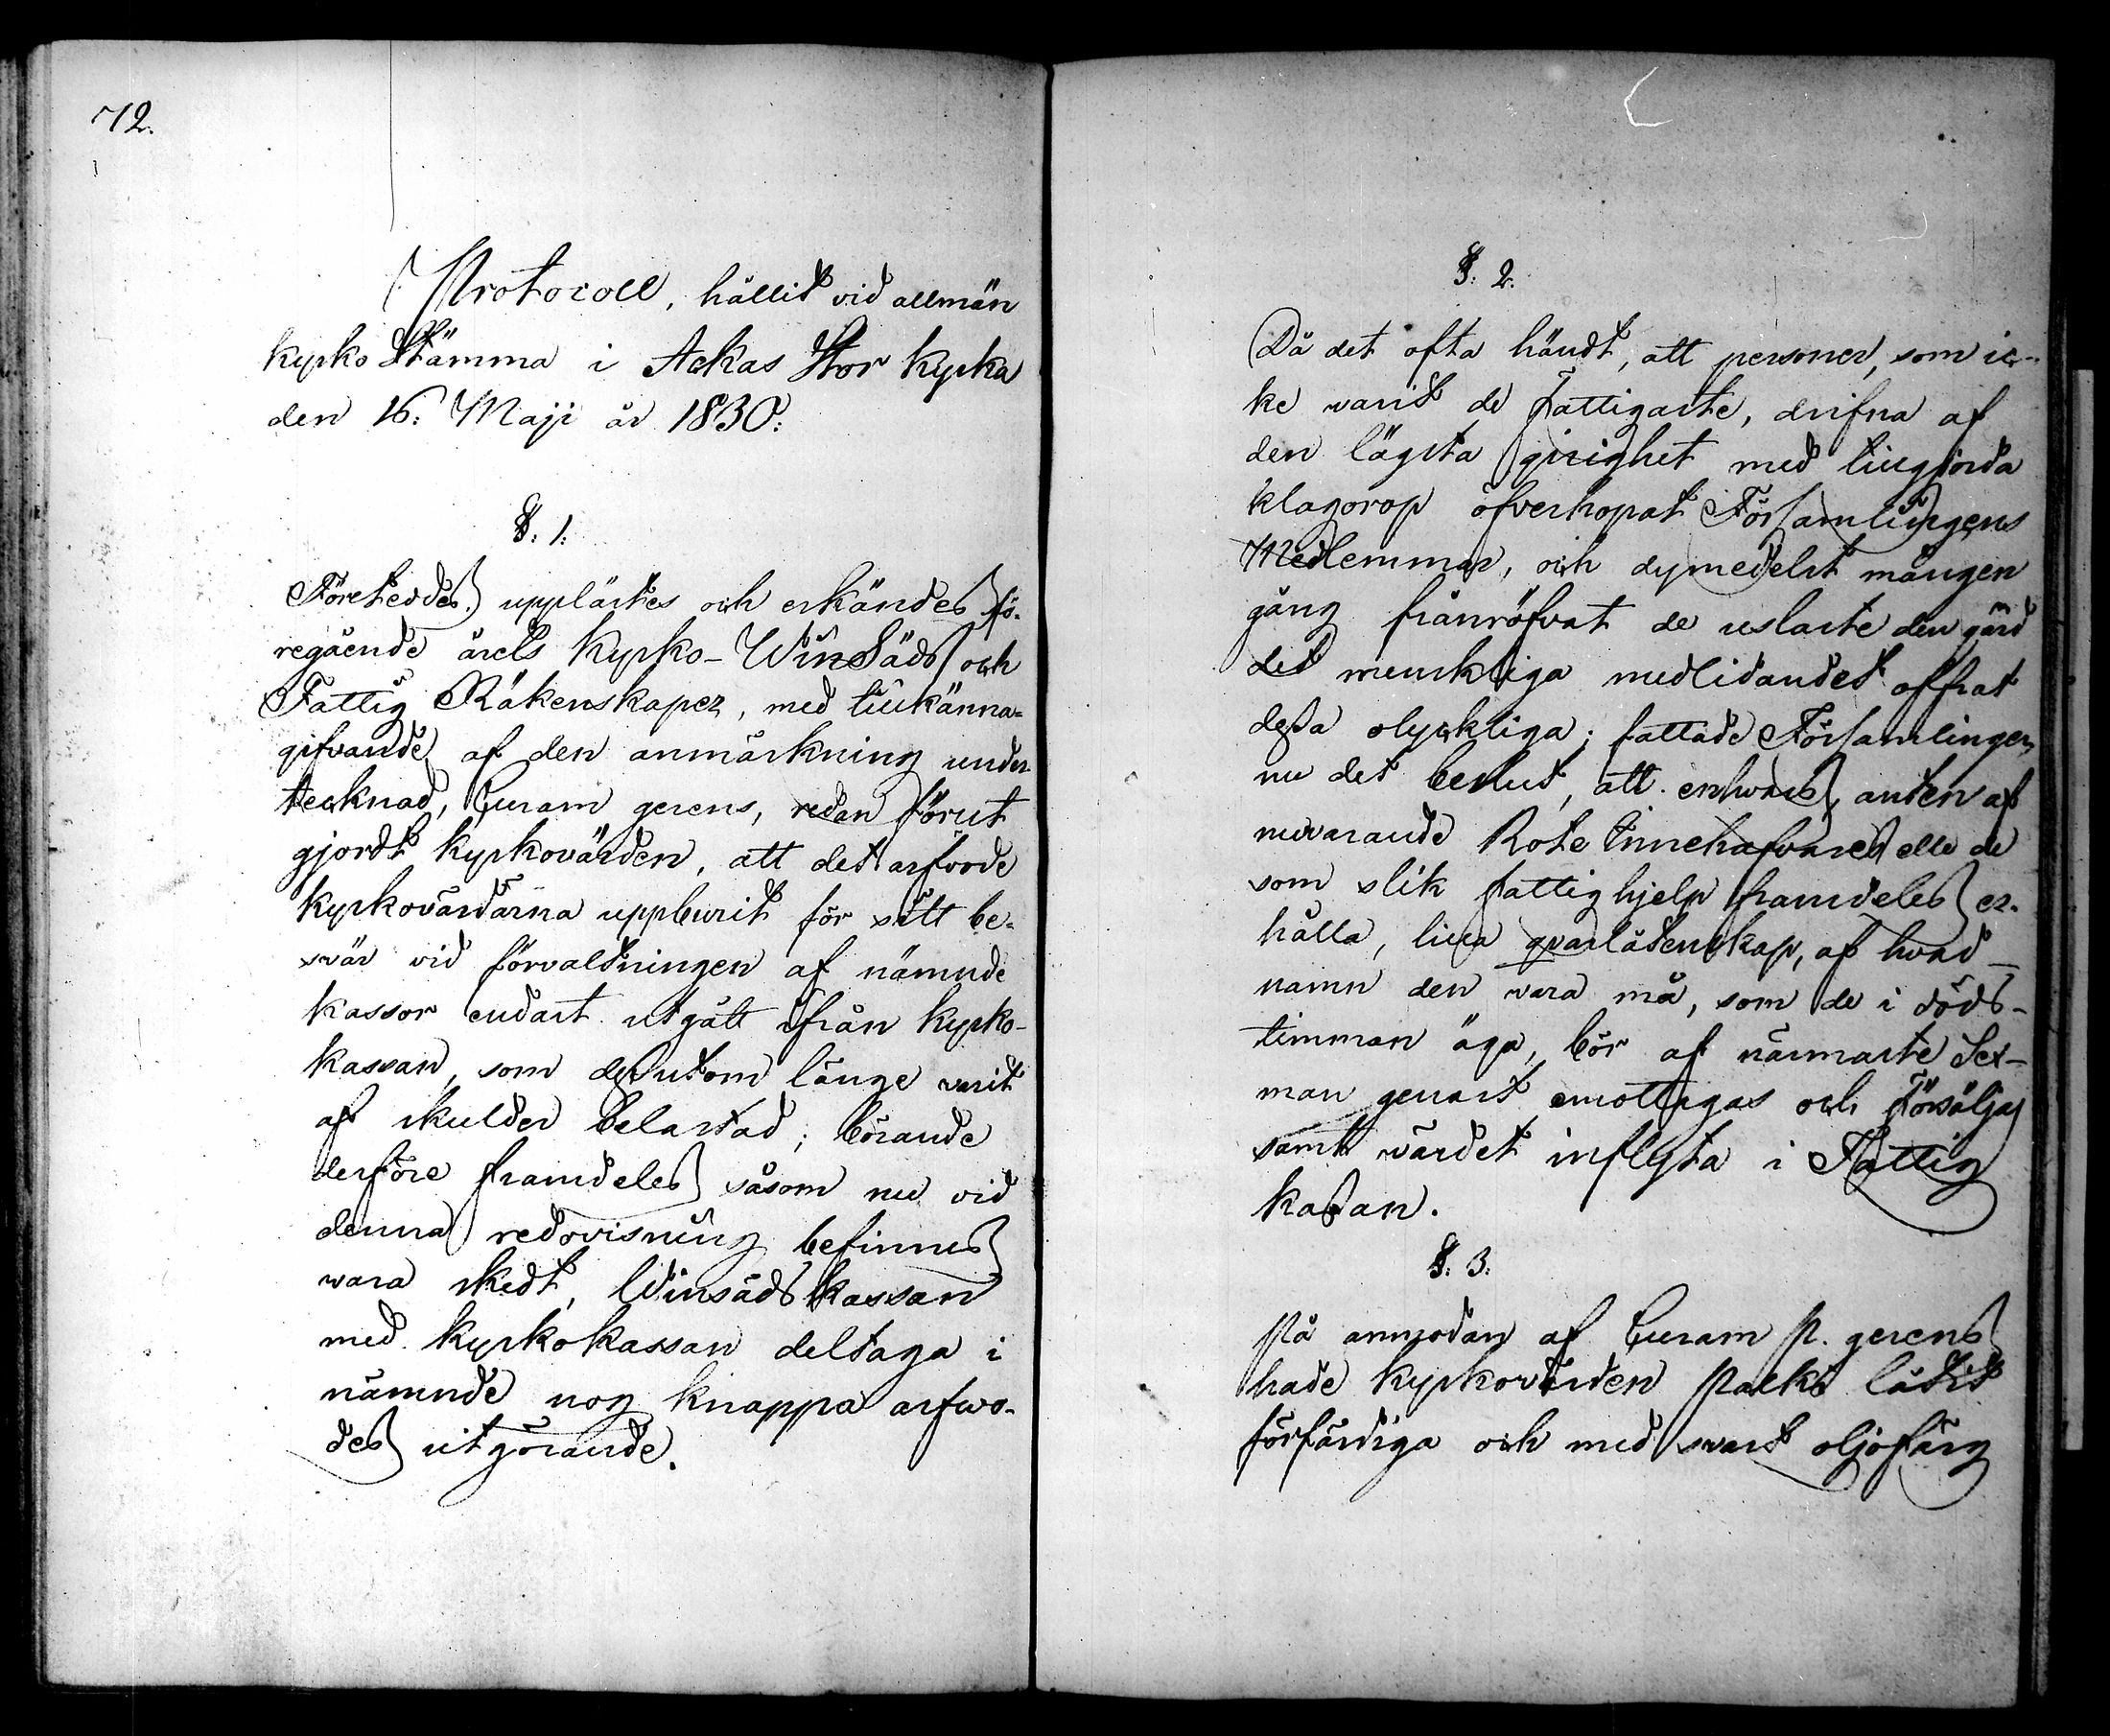 72.
Protocoll, hållit vid allmän
kyrko Stämma i Ackas Stor kyrka
den 16: Maji år 1830:
§. 1.
Företeddes, upplästes och erkändes fö-
regående årets Kyrko- WinSäds och
Fattig Räkenskaper, med tillkänna-
gifvande af den anmärkning under
tecknad, Curam gerens, redan förut
gjordt kyrkovärden, att det arfvode
kyrkovärdarna uppburit för sitt be-
svär vid förvaltningen af nämnde
kassor endast utgått ifrån kyrko-
kassan, som dessutom länge varit
af skulder belastad; börande
derföre framdeles såsom nu vid
denna redovisning befinnes
wara skedt, Winsäds kassan
med kyrkokassan deltaga i
nämnde nog knappa arfwo-
des utgörande.
§. 2.
Då det ofta händt, att personer, som ic-
ke varit de fattigaste, drifna af
den lägsta girighet med tillgjorda
klagorop öfverhopat Församlingens
Medlemmar, och dymedelst mången
gång frånröfvat de uslaste den gärd
det menskliga medlidandet offrat
dessa olyckliga; fattade Församlingen
nu det beslut, att enhvars, anten af
nuvarande Rote Innehafvares elle de
som slik fattighjelp framdeles er-
hålla, lilla qvarlåtenskap, af hvad
namn den vara må, som de i döds-
timman äga, bör af närmaste Sex-
man genast emottagas och försäljas
samt värdet inflyta i Fattig
kassan.
§. 3.
På anmodan af Curam p. gerens
hade kyrkovärden Packs låtit
förfärdiga och med svart oljofärg